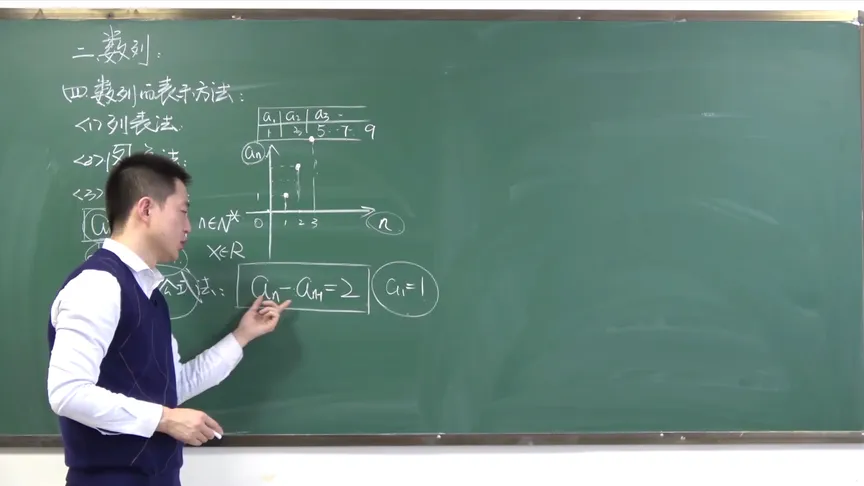 二.数列:
四.数列的表示方法:
<1>列表法.
a₁ a₂ a₃ ‥
1 3 5 ‥ 7 ‥ 9
<2>图 法:
aₙ
1
0 1 2 3 n
<3>
n∈N*
x∈R
公式法: aₙ-aₙ₋₁=2 a₁=1